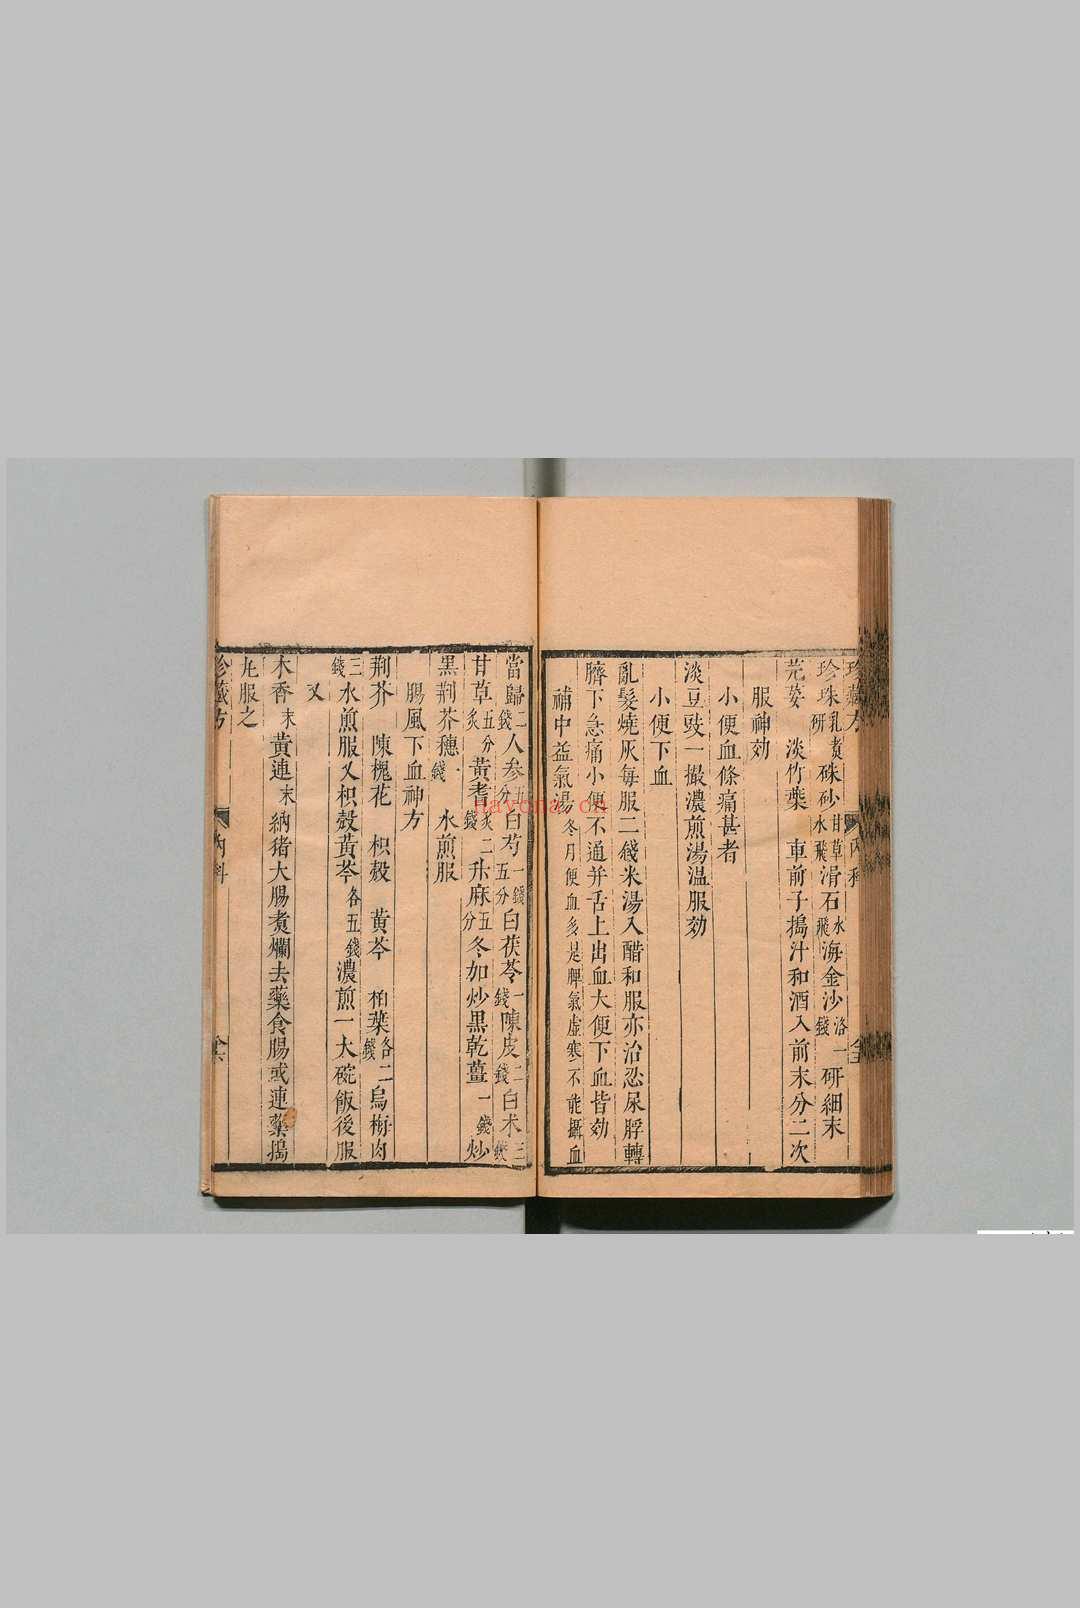 珍珠乳煮研硃砂甘草水飛滑石水飛海金沙各一錢研細末
芫荽　淡竹葉　車前子搗汁和酒入前末分二次
服神効
小便血條痛甚者
淡豆豉一撮濃煎湯温服効
小便下血
亂髮燒灰每服二錢米湯入醋和服亦治忍尿脬轉
臍下急痛小便不通并舌上出血大便下血皆効
補中益氣湯冬月便血多是脾氣虛寒不能攝血
當歸二錢人參五分白芍一錢五分白茯苓一錢陳皮二錢白术三錢
甘草五分炙黃耆炙二錢升麻五分冬加炒黑乾薑一錢炒
黑荆芥穗一錢　水煎服
腸風下血神方
荆芥　陳槐花　枳殼　黃芩　柏葉各二錢烏梅肉
三錢水煎服又枳殼黃芩各五錢濃煎一大碗飯後服
又
木香末黃連末納猪大腸煑爛去藥食腸或連藥搗
丸服之
珍藏方　內科
nayona.cn